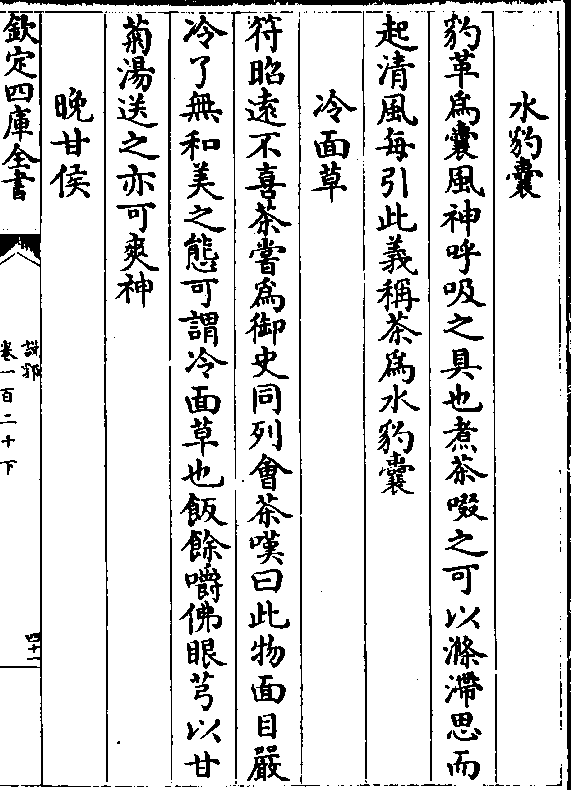 水豹囊
豹革為囊風神呼吸之具也煮茶啜之可以滌滯思而
起清風每引此義稱茶為水豹囊
冷面草
符昭遠不喜茶嘗為御史同列會茶嘆曰此物面目嚴
冷了無和美之態可謂冷面草也飯餘嚼佛眼芎以甘
菊湯送之亦可爽神
晚甘侯
欽定四庫全書
說郛
卷一百二十下
四十一